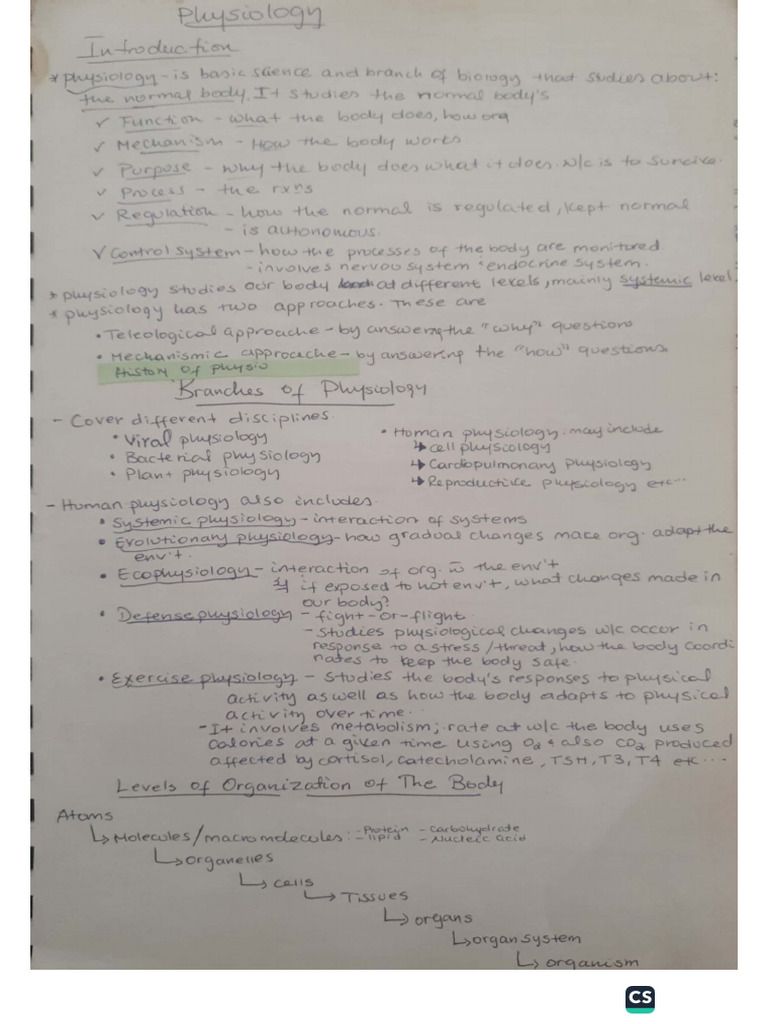 Physiology
Introduction
* physiology - is basic science and branch of biology that studies about:
the normal body. It studies the normal body's
✓ Function - what the body does, how org
✓ Mechanism - How the body works
✓ Purpose - why the body does what it does. w/c is to survive.
✓ Process - the rxns
✓ Regulation - how the normal is regulated, kept normal
- is autonomous.
✓ Control system - how the processes of the body are monitored
- involves nervous system & endocrine system.
* physiology studies our body at different levels, mainly systemic level.
* physiology has two approaches. These are
• Teleological approache - by answering the "why" questions
• Mechanismic approache - by answering the "how" questions.
History of physio
Branches of Physiology
- Cover different disciplines.
• Viral physiology
• Bacterial physiology
• Plant physiology
• Human physiology. may include
↳ cell physiology
↳ Cardiopulmonary physiology
↳ Reproductive physiology etc...
- Human physiology also includes.
• Systemic physiology - interaction of systems
• Evolutionary physiology - how gradual changes make org. adapt the
env't.
• Ecophysiology - interaction of org. w̄ the env't
if exposed to hot env't, what changes made in
our body?
• Defense physiology - fight-or-flight.
- Studies physiological changes w/c occur in
response to a stress/threat, how the body coordi
nates to keep the body safe.
• Exercise physiology - Studies the body's responses to physical
activity as well as how the body adapts to physical
activity over time.
- It involves metabolism; rate at w/c the body uses
calories at a given time using O2 & also CO2 produced
affected by cortisol, catecholamine, TSH, T3, T4 etc...
Levels of Organization of The Body
Atoms
↳ Molecules/macromolecules: - Protein - Carbohydrate
- lipid - Nucleic acid
↳ organelles
↳ cells
↳ Tissues
↳ organs
↳ organ system
↳ organism
CS